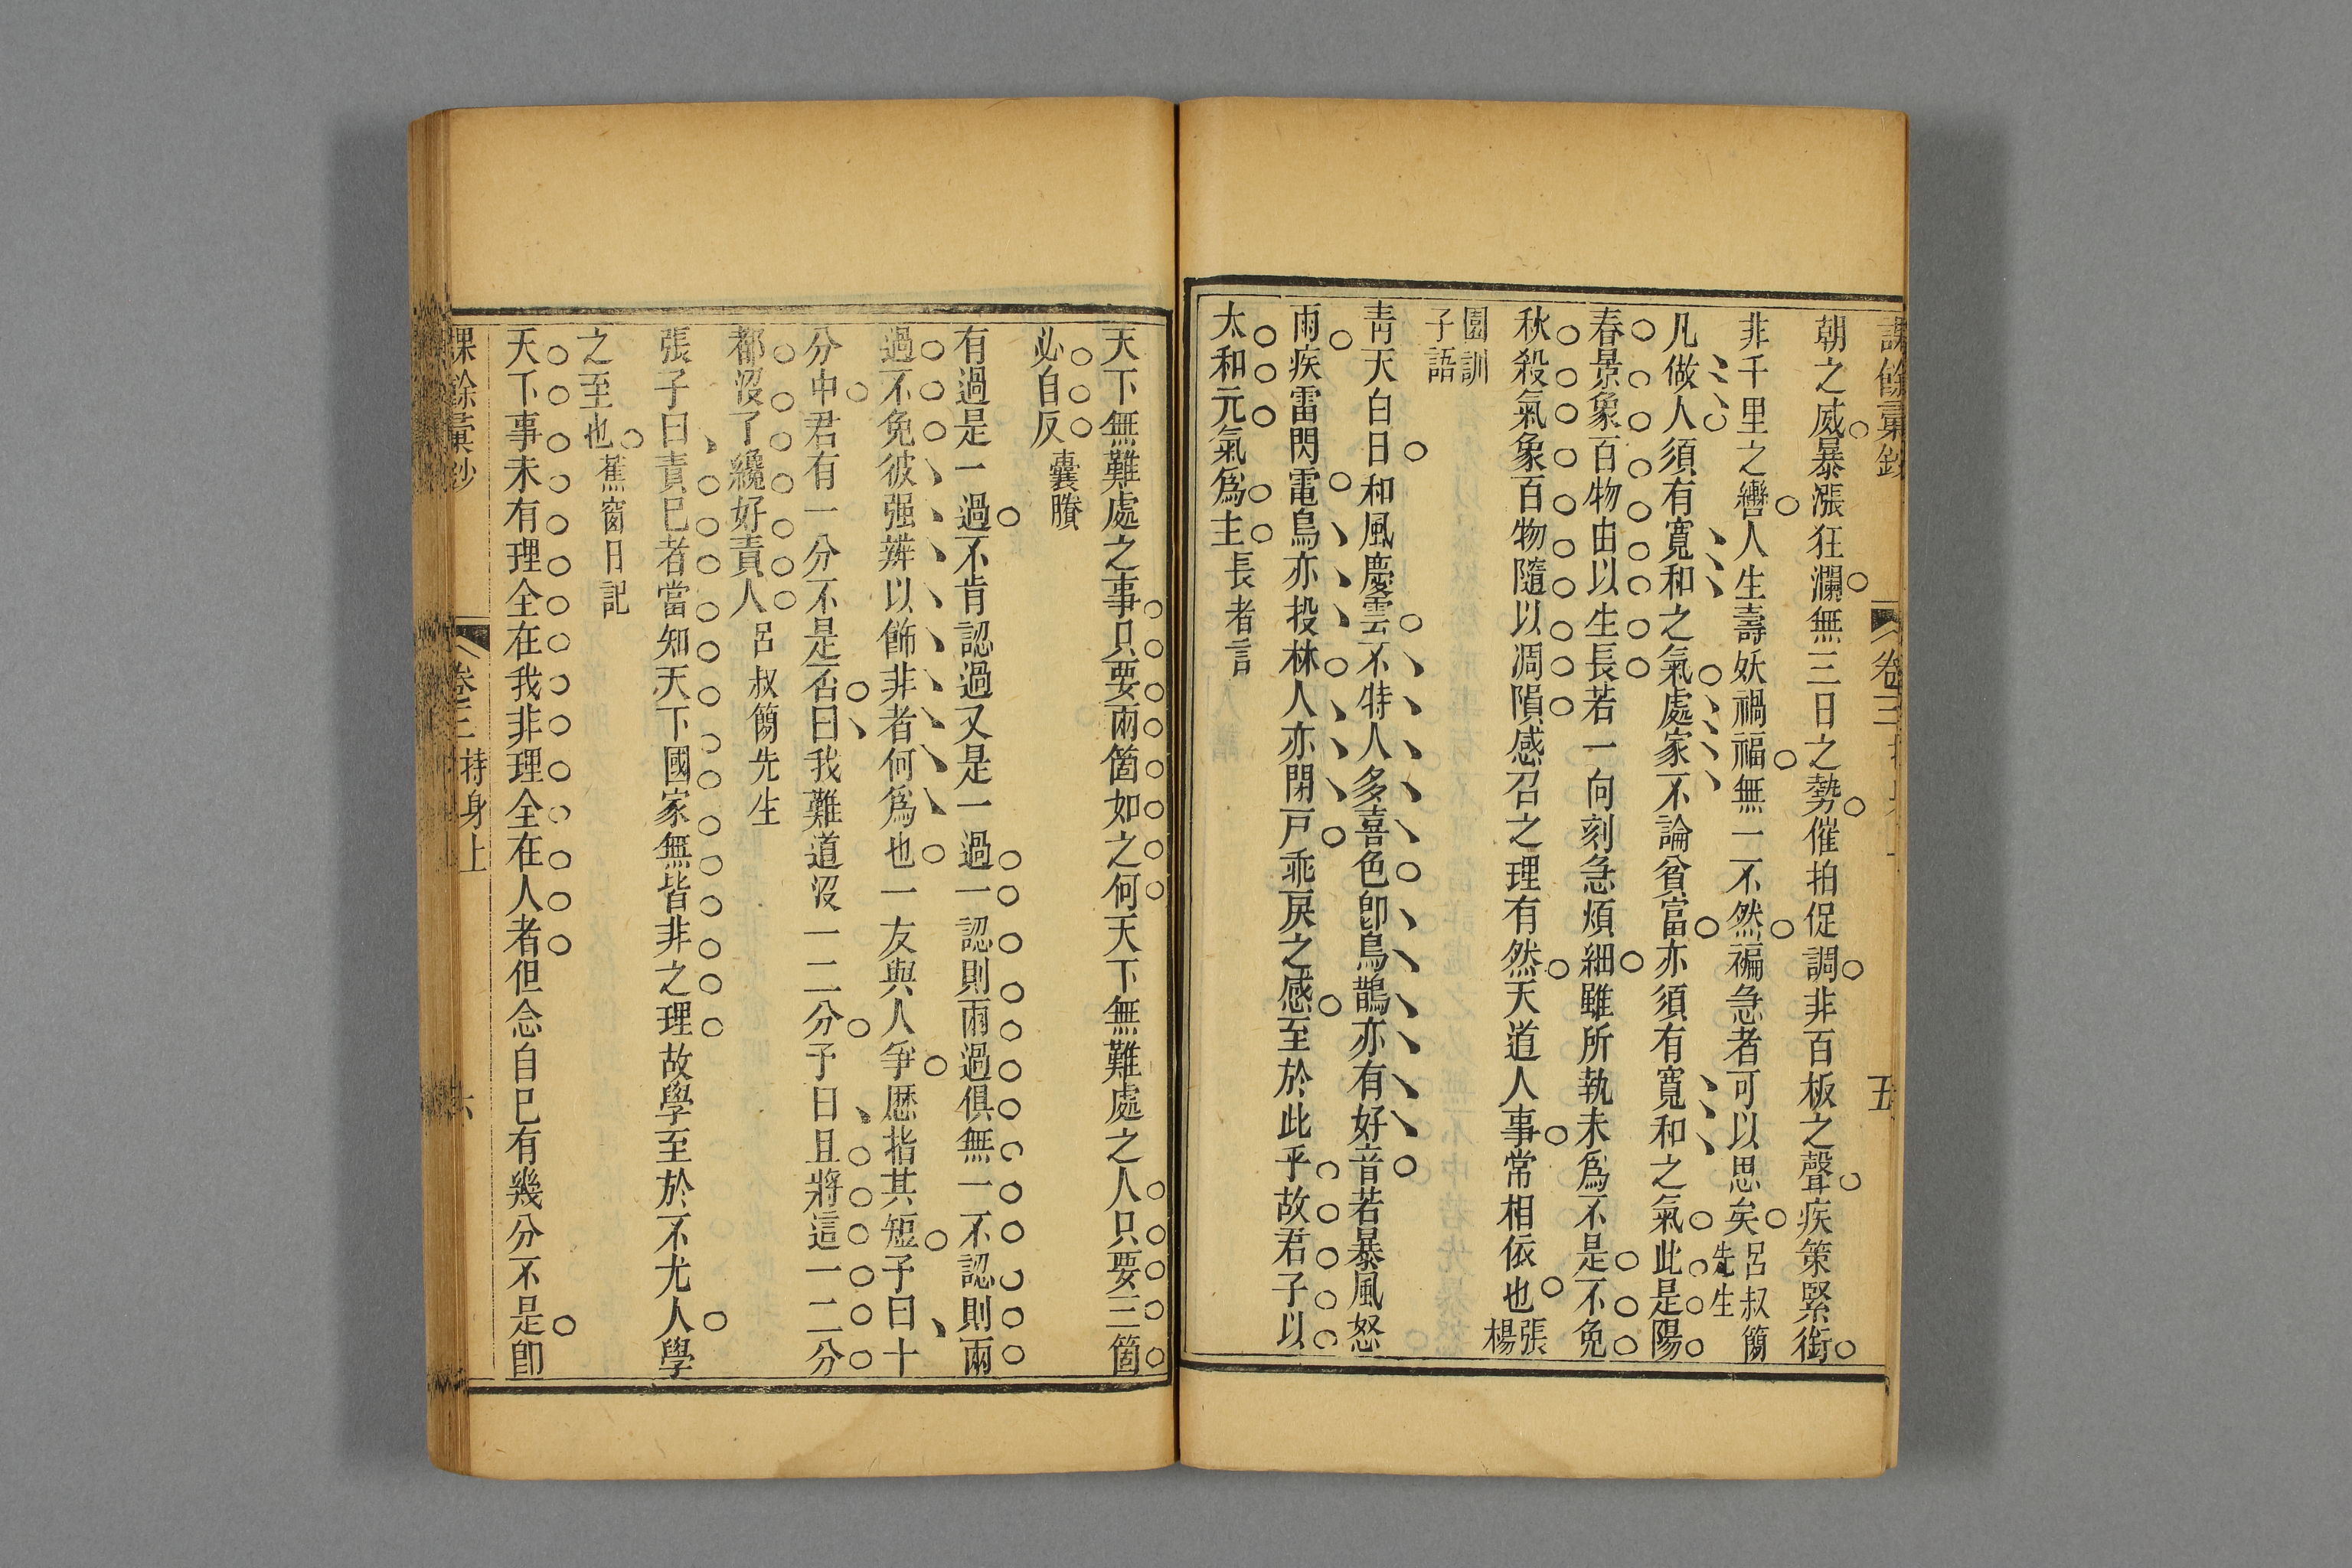 課餘彙鈔
卷三
五
朝之威暴漲狂瀾無三日之勢催拍促調非百板之聲疾策緊銜
非千里之轡人生壽妖禍福無一不然褊急者可以思矣呂叔簡
先生
凡做人須有寬和之氣處家不論貧富亦須有寬和之氣此是陽
春景象百物由以生長若一向刻急煩細雖所執未爲不是不免
秋殺氣象百物隨以凋隕感召之理有然天道人事常相依也張
楊
園訓
子語
靑天白日和風慶雲不特人多喜色卽鳥鵲亦有好音若暴風怒
雨疾雷閃電鳥亦投林人亦閉戸乖戾之感至於此乎故君子以
太和元氣爲主長者言
天下無難處之事只要兩箇如之何天下無難處之人只要三箇
必自反囊賸
有過是一過不肯認過又是一過一認則兩過俱無一不認則兩
過不免彼强辨以飾非者何爲也一友與人爭歷指其短予曰十
分中君有一分不是否曰我難道沒一二分予曰且將這一二分
都沒了纔好責人呂叔簡先生
張子曰責已者當知天下國家無皆非之理故學至於不尤人學
之至也蕉窗日記
天下事未有理全在我非理全在人者但念自已有幾分不是卽
課餘彙鈔
卷三 持身上
六